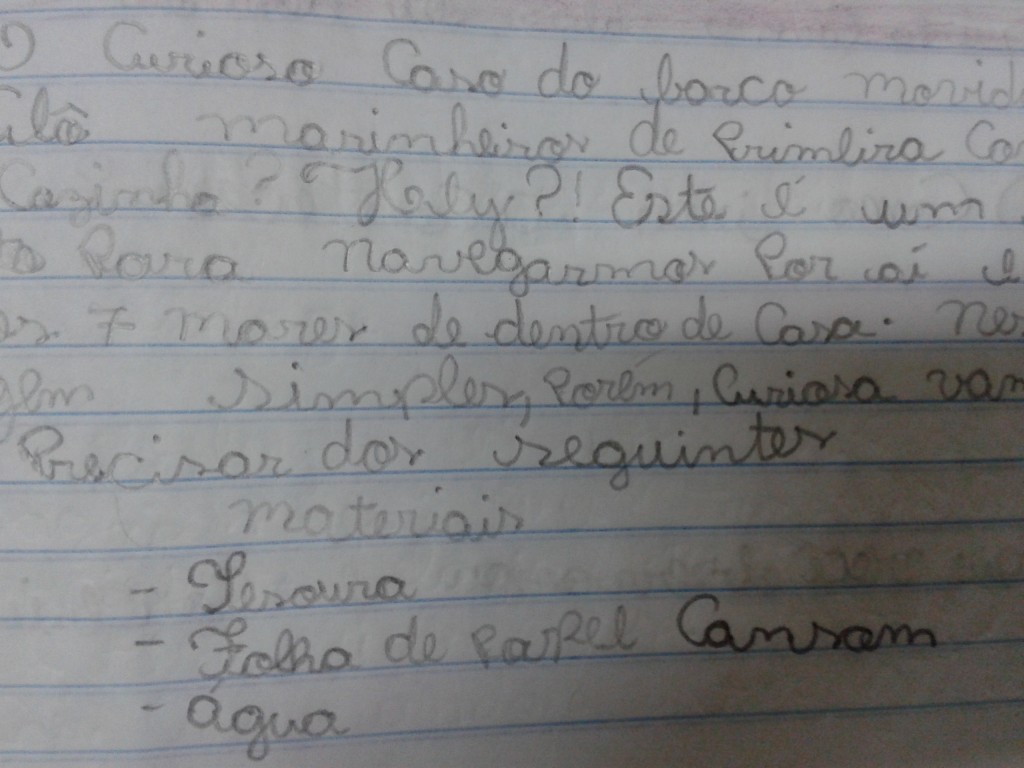 O Curioso Caso do barco movid
Alô marinheiros de Primeira Ca
Cazinho? Holy?! Este é um
to Para navegarmos Por aí e
os 7 mares de dentro de Casa. Nes
gem simples, Porém, Curiosa vam
Precisar dos seguintes
materiais
- Tesoura
- Folha de Papel Cansam
- água